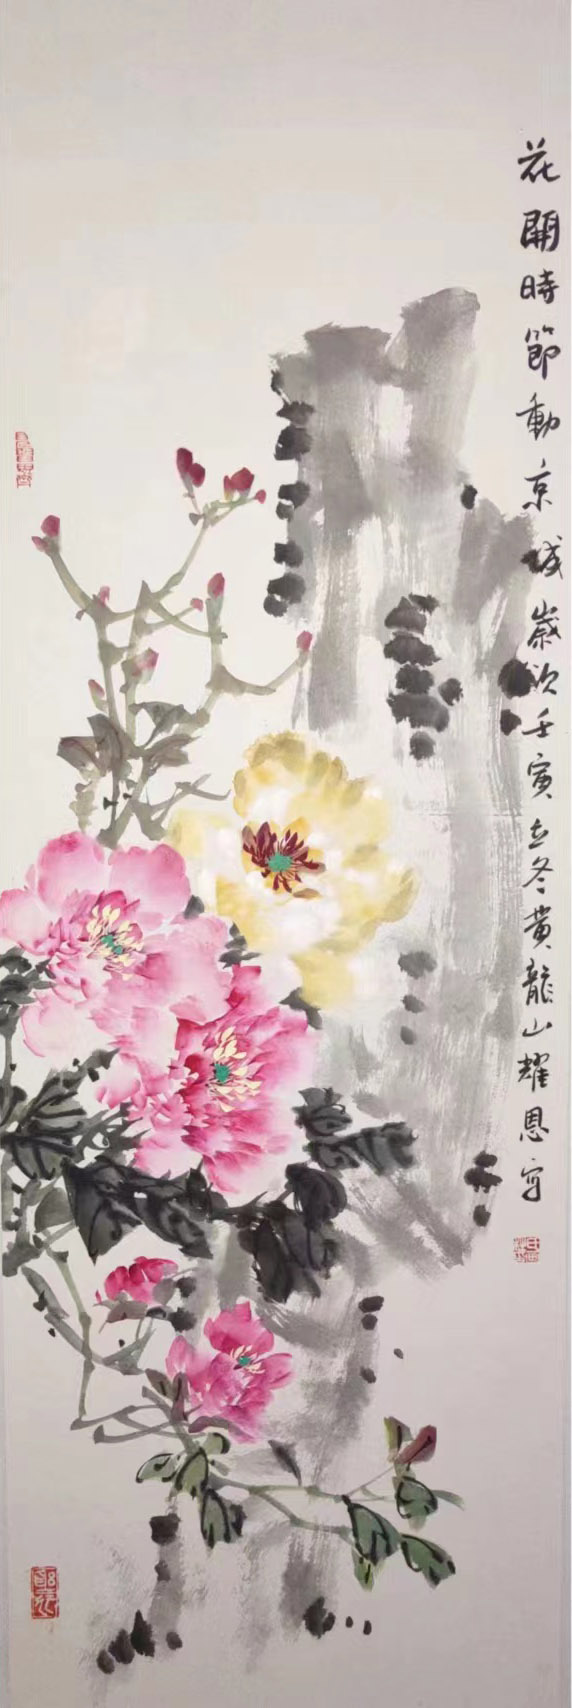 花開時節動京城歲次壬寅立冬黃龍山耀恩寫